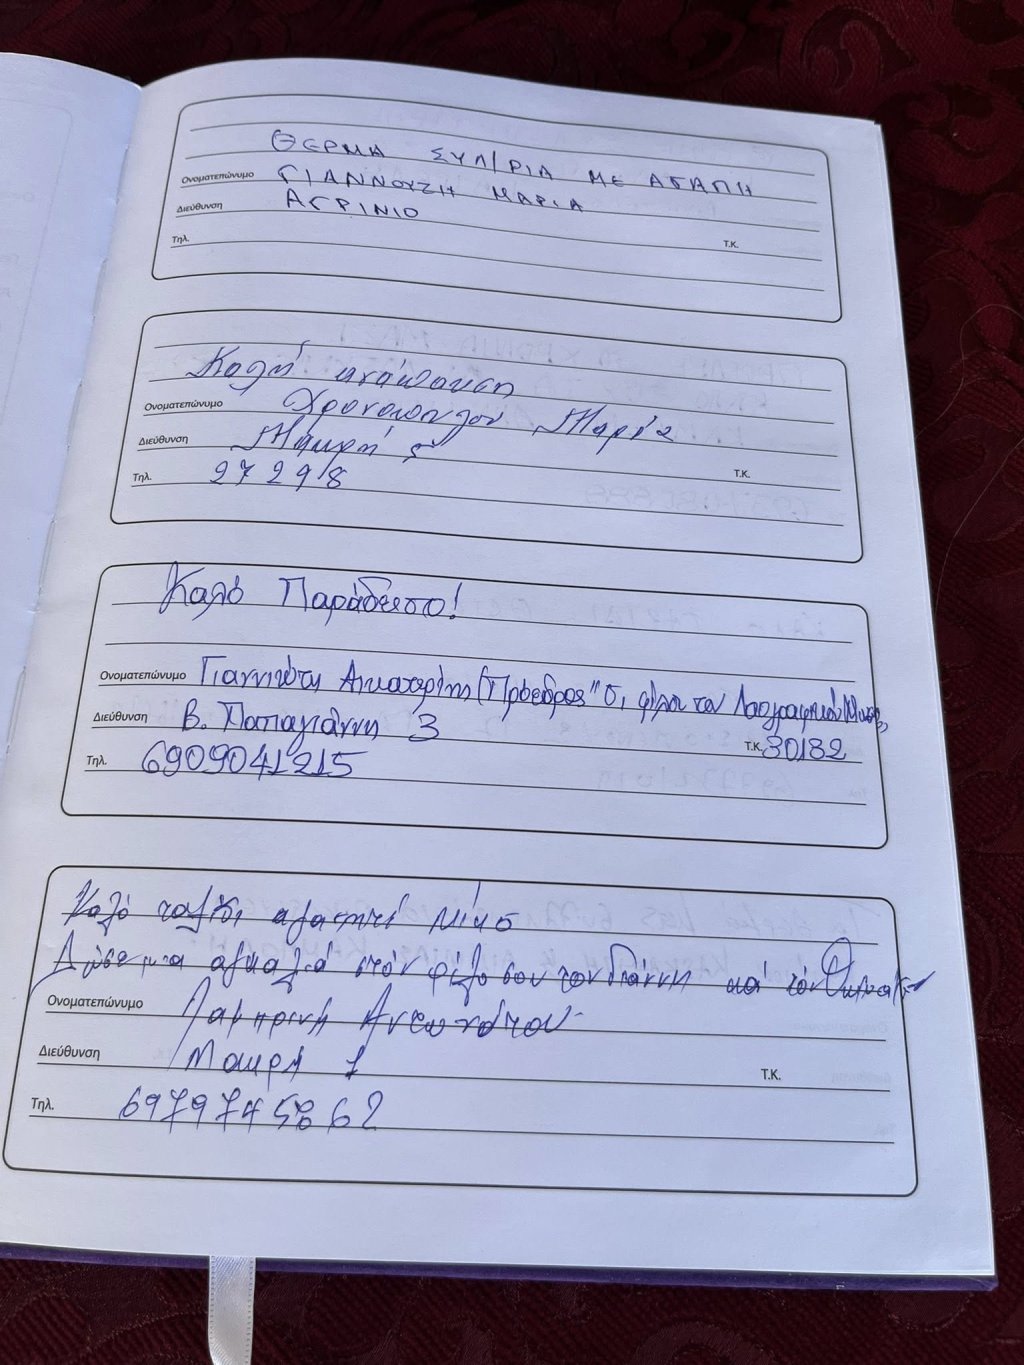 ΘΕΡΜΑ ΣΥΛ/ΡΙΑ ΜΕ ΑΓΑΠΗ
Ονοματεπώνυμο ΓΙΑΝΝΟΥΣΗ ΜΑΡΙΑ
Διεύθυνση ΑΓΡΙΝΙΟ
Τηλ. Τ.Κ.
Καλή ανάπαυση
Ονοματεπώνυμο Χρονοπούλου Μαρία
Διεύθυνση Μακρή 5
Τηλ. 27298 Τ.Κ.
Καλό Παράδεισο!
Ονοματεπώνυμο Γιαννιώτη Αικατερίνη (Πρόεδρος "Οι φίλοι του Λαογραφικού
Διεύθυνση Β. Παπαγιάννη 3 Τ.Κ. 30132
Τηλ. 6909041215
Καλό ταξίδι αγαπητέ Νίκο
Δώσε μια αγκαλιά στόν φίλο σου τον Γιάννη καί τόν
Ονοματεπώνυμο Λαμπρινή
Διεύθυνση Μακρή 1 Τ.Κ.
Τηλ. 6979745862